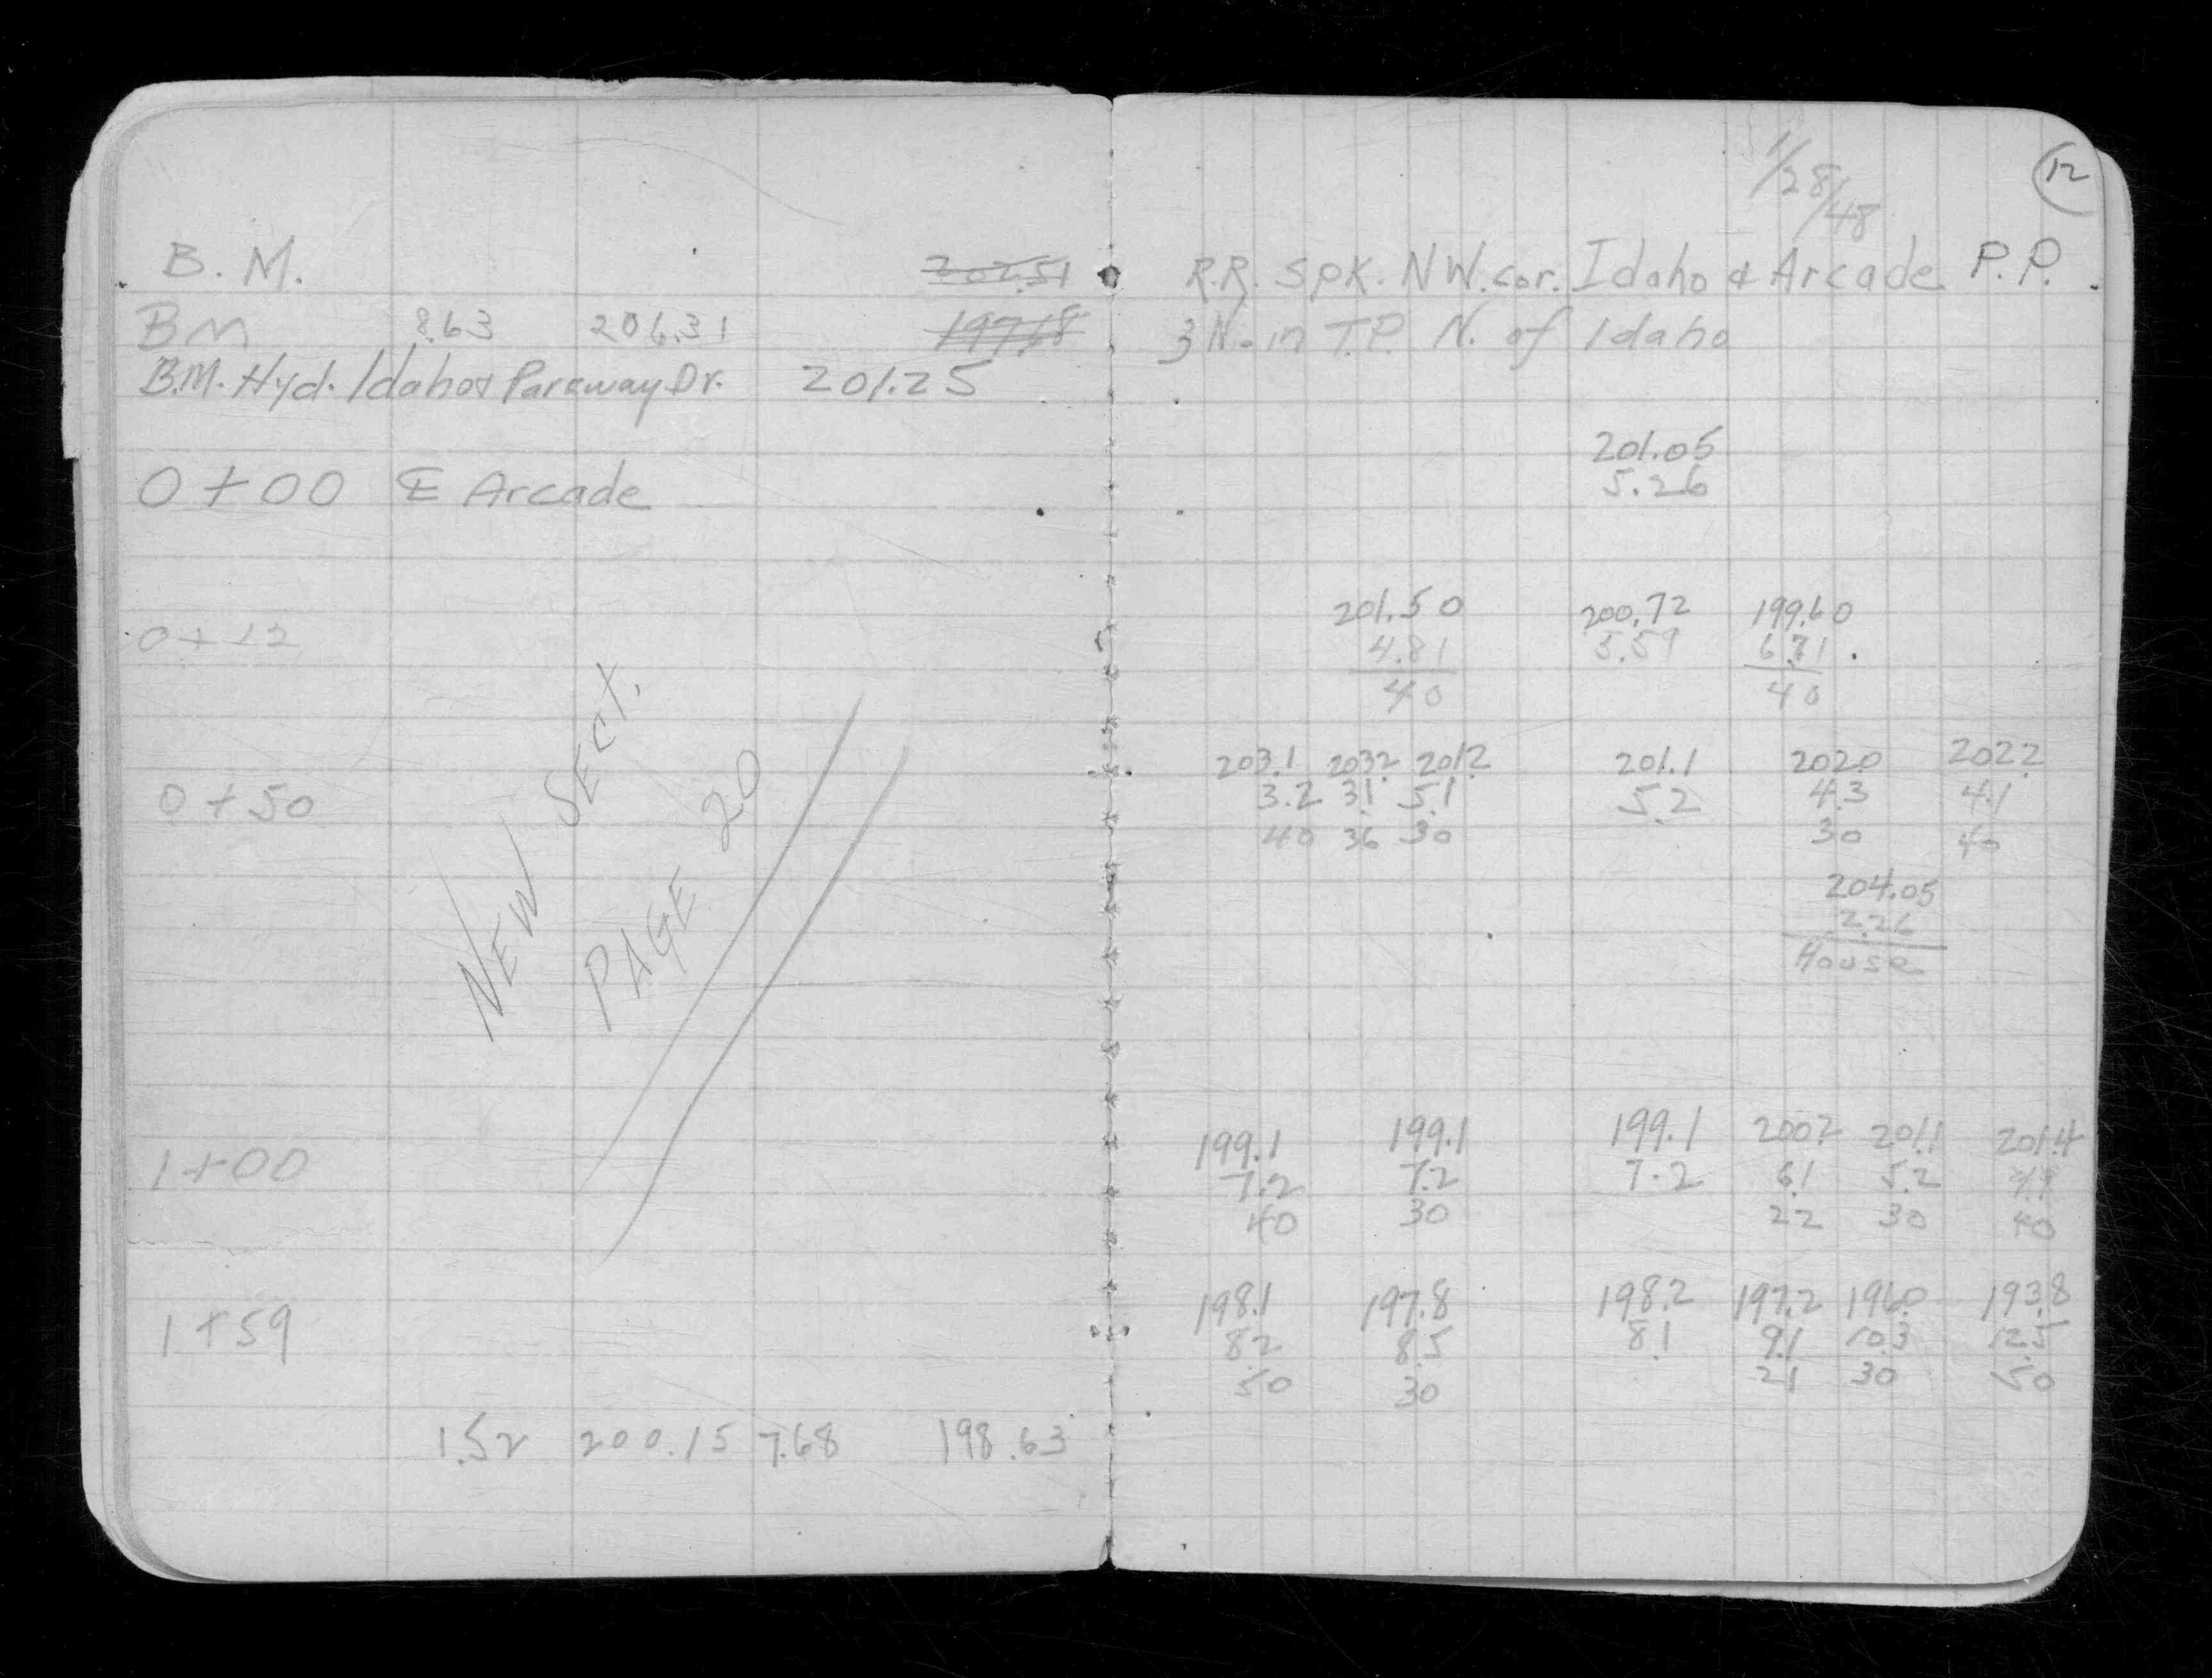 B.M. 202.51
BM 8.63 206.31 197.68
B.M. Hyd. Idaho & Parkway Dr. 201.25
0+00 ℄ Arcade
0+12
0+50
NEW SECT.
PAGE 20
1+00
1+59
1.52 200.15 7.68 198.63
12
1/28/48
R.R. SPK. NW. cor. Idaho & Arcade P.P.
3 N. in T.P. N. of Idaho
201.05
5.26
201.50 200.72 199.60
4.81 5.59 6.71
40 40
203.1 203.2 201.2 201.1 202.0 202.2
3.2 3.1 5.1 5.2 4.3 4.1
40 36 30 30 40
204.05
2.26
House
199.1 199.1 199.1 200.2 201.1 201.4
7.2 7.2 7.2 6.1 5.2
40 30 22 30 40
198.1 197.8 198.2 197.2 196.0 193.8
8.2 8.5 8.1 9.1 10.3 12.5
50 30 21 30 50